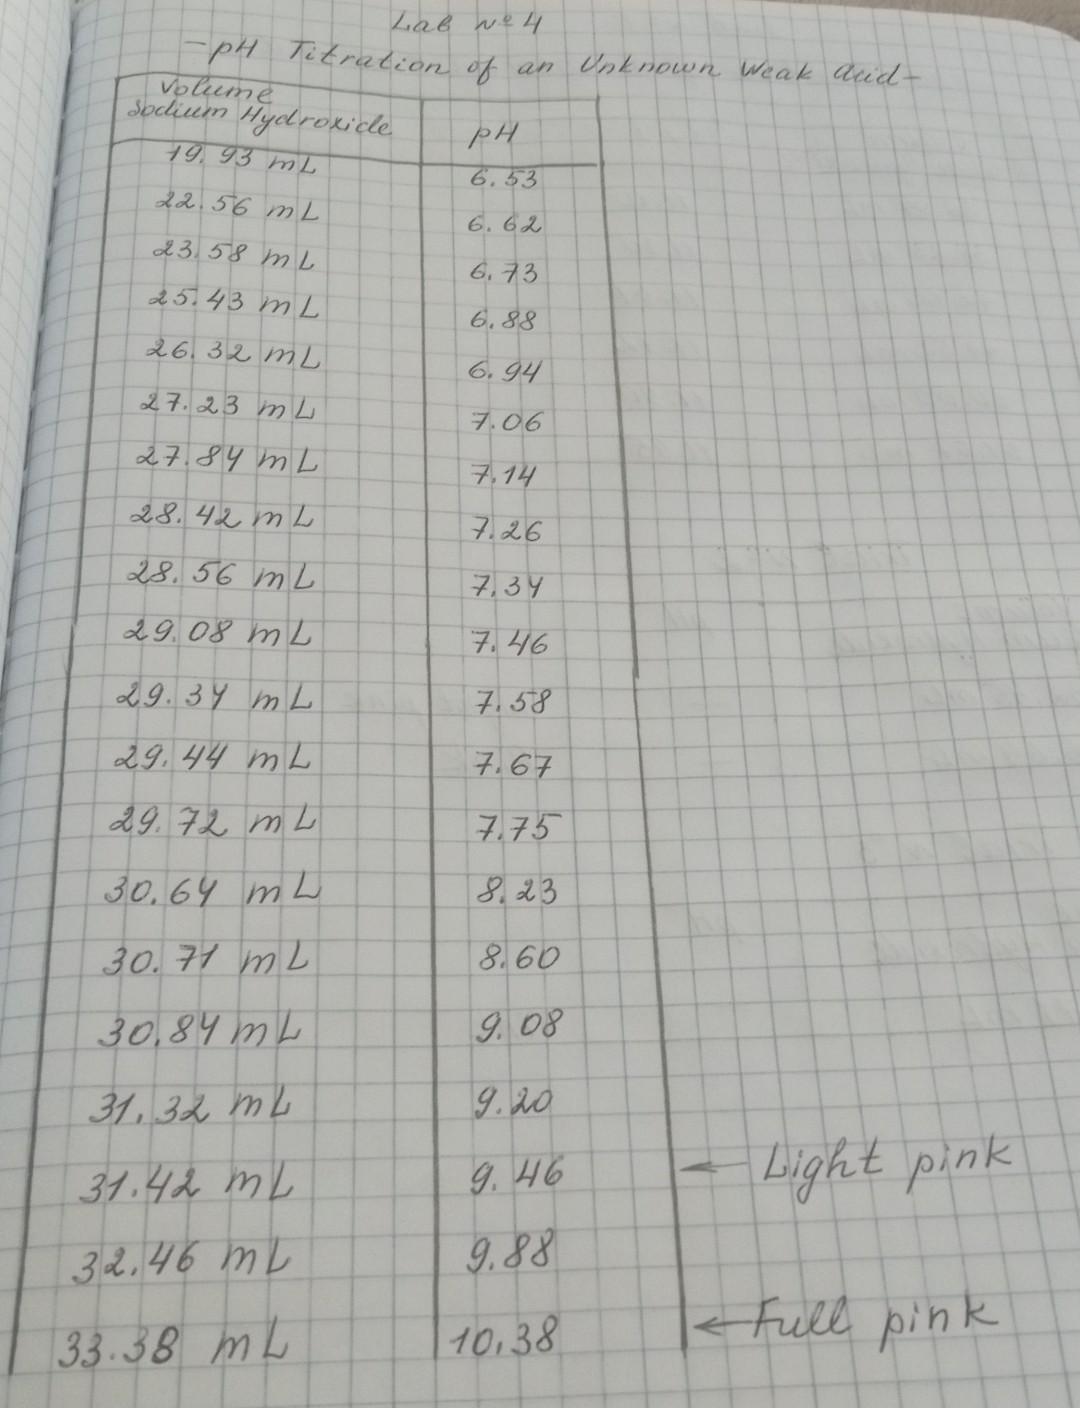 Lab №4
- pH Titration of an Unknown Weak Acid -
Volume
Sodium Hydroxide
pH
19.93 mL 6.53
22.56 mL 6.62
23.58 mL 6.73
25.43 mL 6.88
26.32 mL 6.94
27.23 mL 7.06
27.84 mL 7.14
28.42 mL 7.26
28.56 mL 7.34
29.08 mL 7.46
29.34 mL 7.58
29.44 mL 7.67
29.72 mL 7.75
30.64 mL 8.23
30.71 mL 8.60
30.84 mL 9.08
31.32 mL 9.20
31.42 mL 9.46 ← Light pink
32.46 mL 9.88
33.38 mL 10.38 ← Full pink